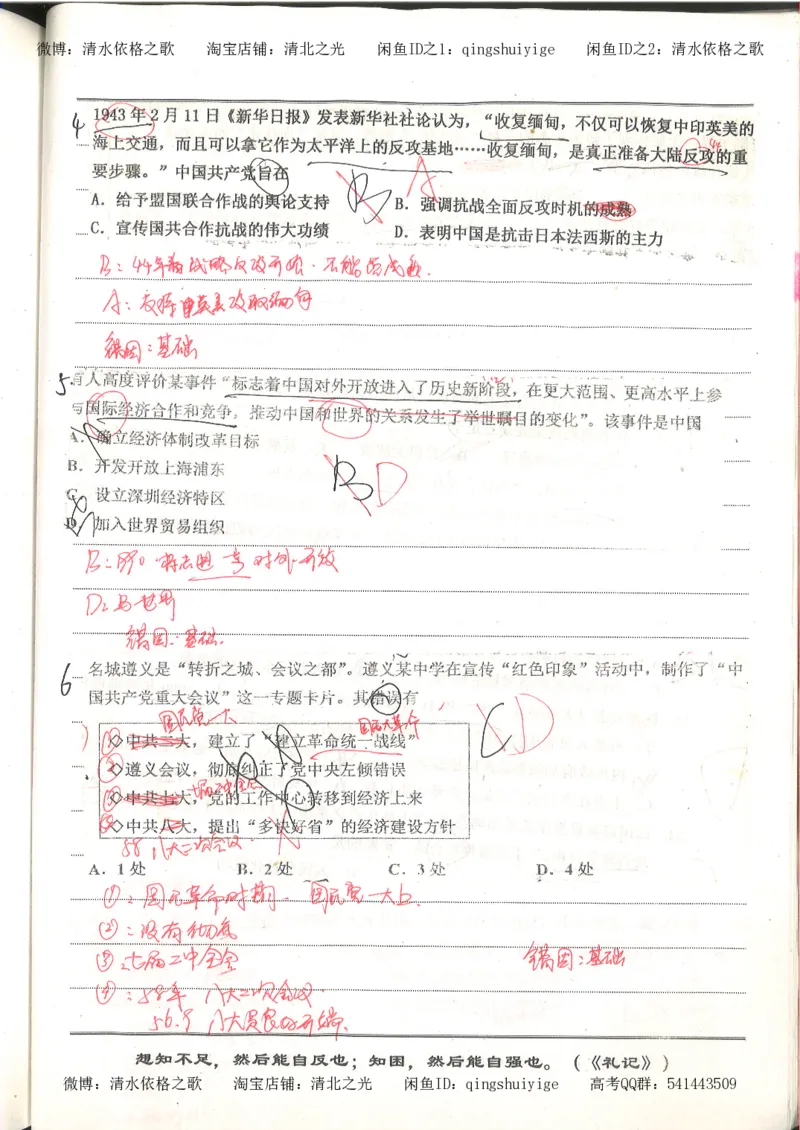 微博：清水依格之歌 淘宝店铺：清北之光 闲鱼ID之1：qingshuiyige 闲鱼ID之2：清水依格之歌
4 1943年2月11日《新华日报》发表新华社社论认为，“收复缅甸，不仅可以恢复中印英美的
海上交通，而且可以拿它作为太平洋上的反攻基地……收复缅甸，是真正准备大陆反攻的重
44
要步骤。”中国共产党旨在
B A
A．给予盟国联合作战的舆论支持 B．强调抗战全面反攻时机的成熟
C．宣传国共合作抗战的伟大功绩 D．表明中国是抗击日本法西斯的主力
B：44年初战略反攻开始，不能说成熟．
A：支持中英美攻取缅甸
错因：基础
5.有人高度评价某事件“标志着中国对外开放进入了历史新阶段，在更大范围、更高水平上参
与国际经济合作和竞争。推动中国和世界的关系发生了举世瞩目的变化”。该事件是中国
A．确立经济体制改革目标
B．开发开放上海浦东
B D
C．设立深圳经济特区
D．加入世界贸易组织
D：与世界
错因：基础．
6 名城遵义是“转折之城、会议之都”。遵义某中学在宣传“红色印象”活动中，制作了“中
国共产党重大会议”这一专题卡片。其错误有
国民党一大 国民大革命 C D
①◇中共二大，建立了“建立革命统一战线”
②◇遵义会议，彻底纠正了党中央左倾错误
七届二中全会
③◇中共七大，党的工作中心转移到经济上来
④◇中共八大，提出“多快好省”的经济建设方针
58 八大二次会议
A．1处 B．2处 C．3处 D．4处
①：国民革命时期．国民党一大上．
②：没有彻底
③：七届二中全会
错因：基础
④：58年 八大二次会议．
想知不足，然后能自反也；知困，然后能自强也。（《礼记》）
微博：清水依格之歌 淘宝店铺：清北之光 闲鱼ID：qingshuiyige 高考QQ群：541443509